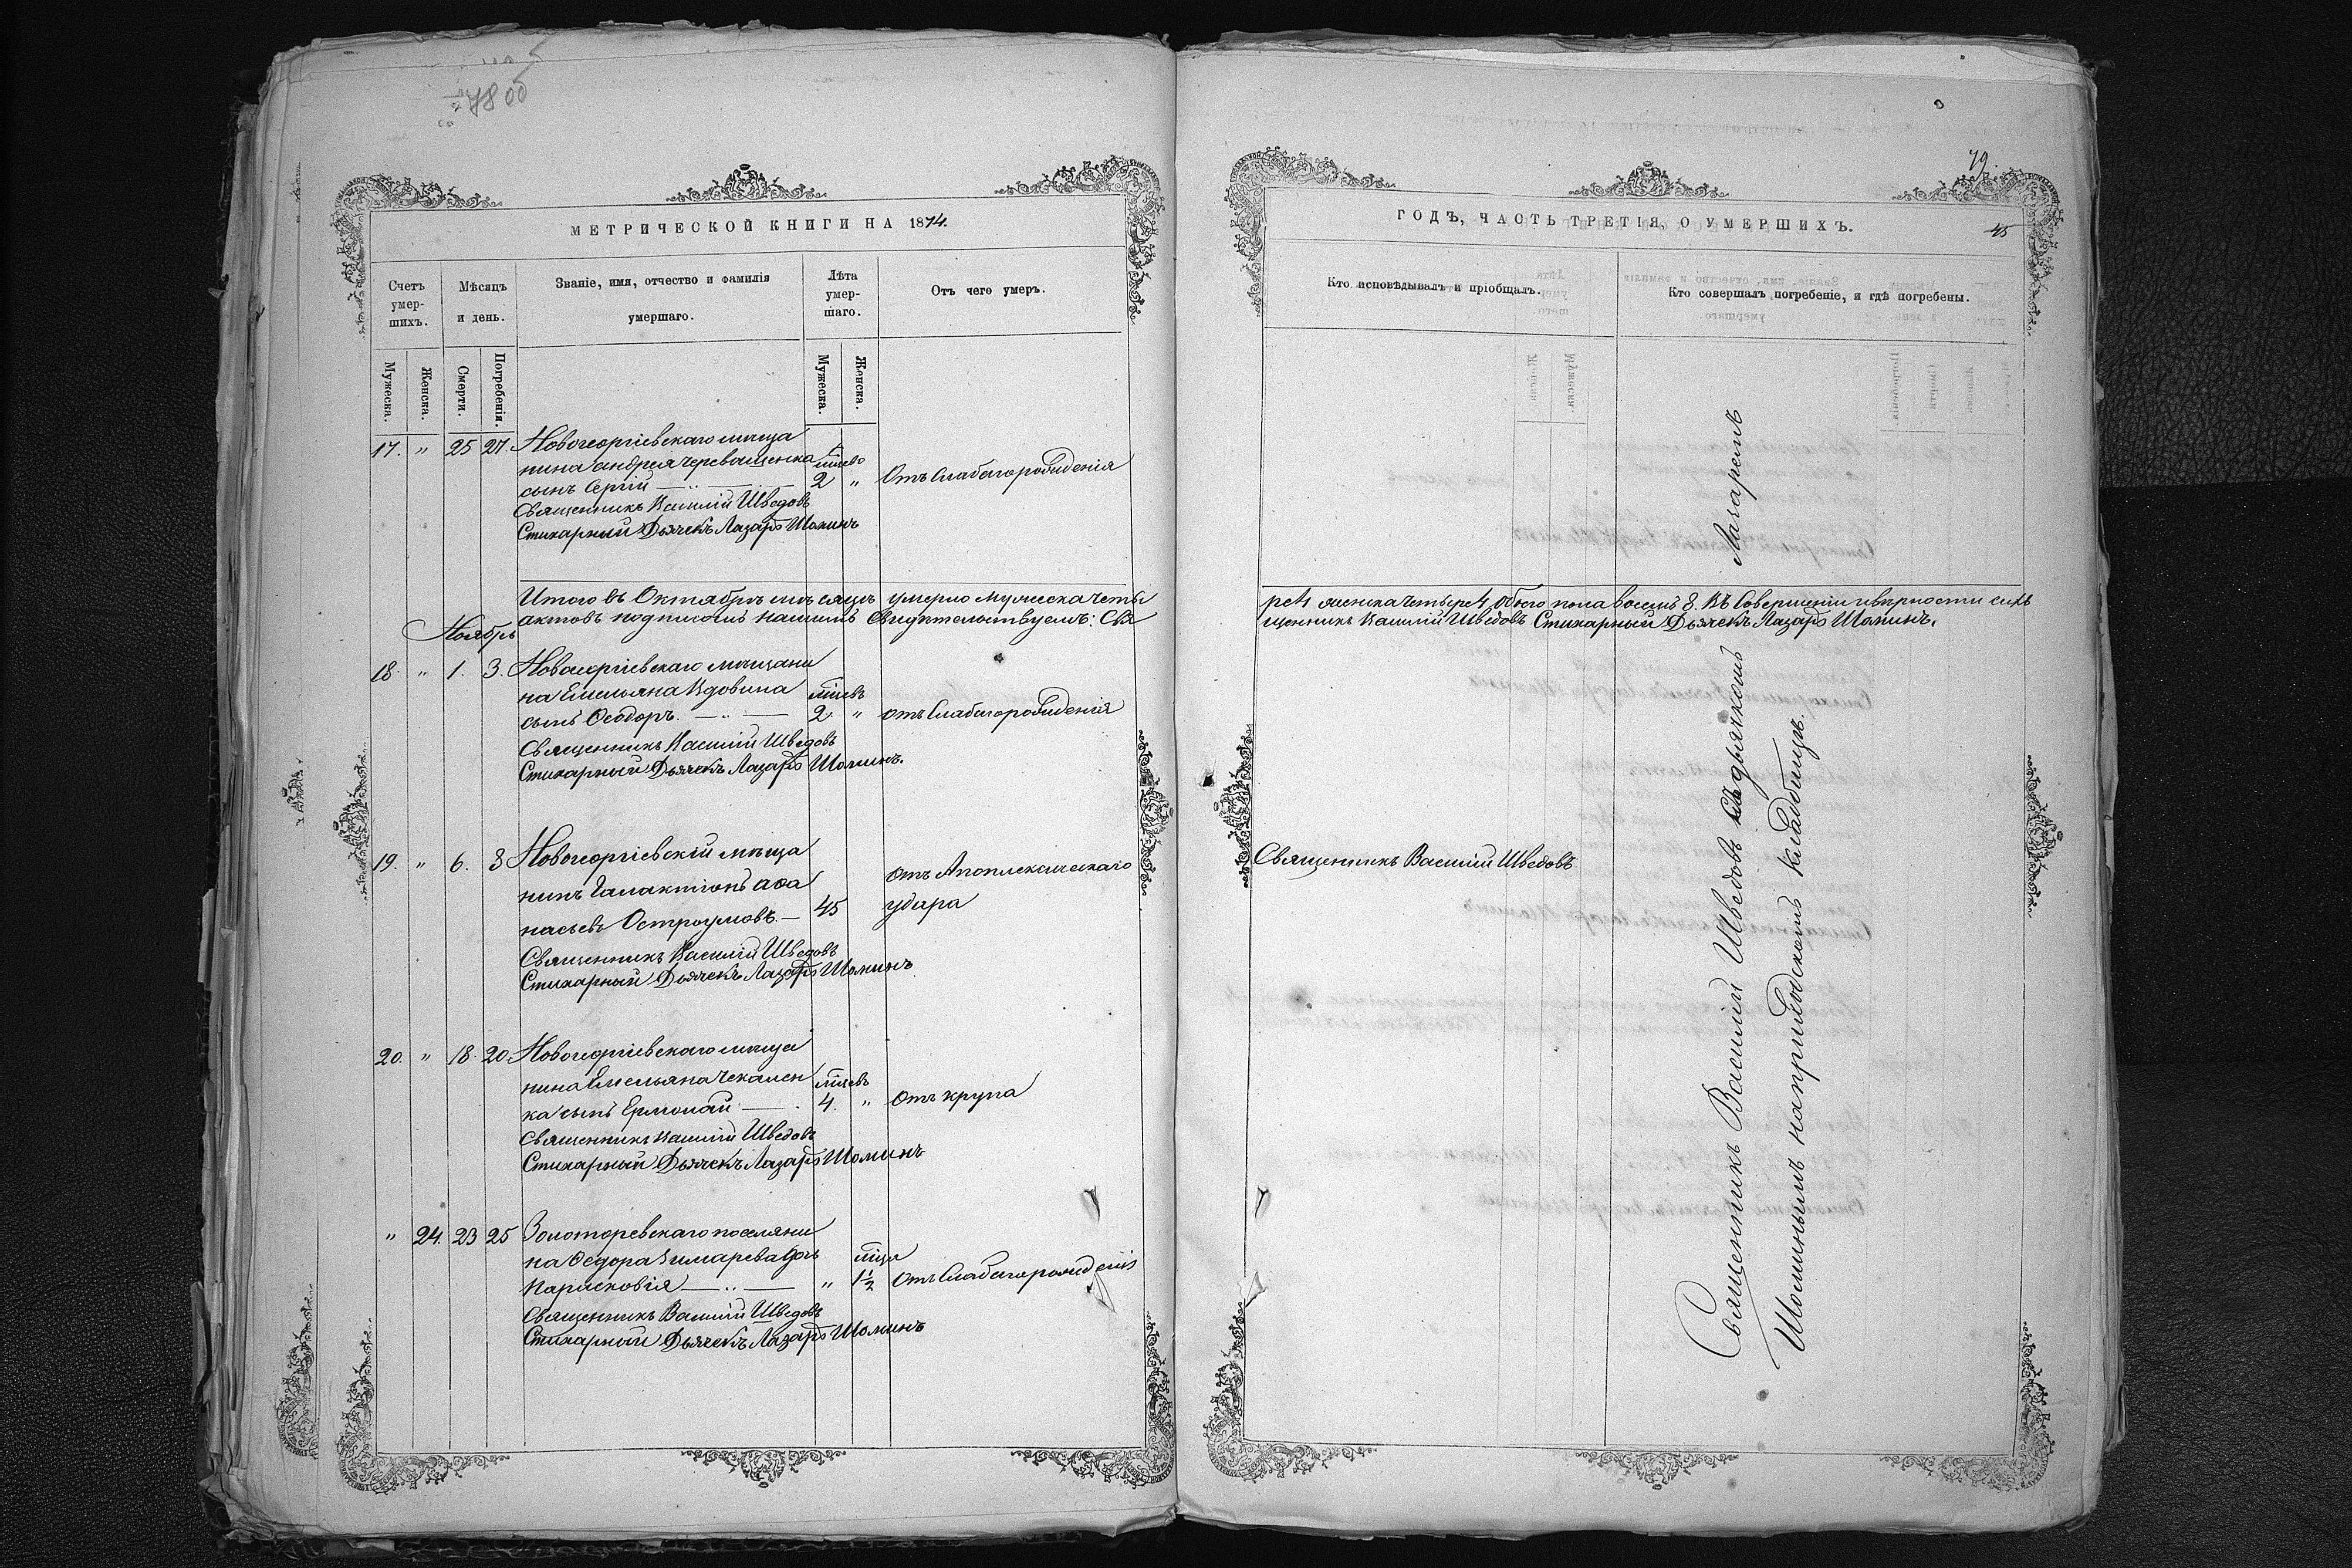 7800
МЕТРИЧЕСКОЙ КНИГИ НА 1874.
Счетъ умер-шихъ.
Мѣсяцъ и день.
Званіе, имя, отчество и фамилія умершаго.
Лѣта умер-шаго.
Отъ чего умеръ.
Мужеска.
Женска.
Смерти.
Погребенія.
Мужеска.
Женска.
17. " 25 27. Новогеоргіевскаго мѣща
нина Андрея
сынъ Сергій 2 " Отъ слабагорожденія
Священникъ Василій Шведовъ
Стихарный Дьячекъ Лазарь Шоминъ
Итого въ Октябрѣ мѣсяцѣ умерло мужеска четы
актовъ подписомъ нашимъ Свидѣтельствуемъ: Свя
Ноябрь
18. " 1. 3. Новогеоргіевскаго мѣщани
на Емельяна Вдовина мѣсяцевъ
сынъ Ѳеодоръ 2. " отъ слабагорожденія
Священникъ Василій Шведовъ
Стихарный Дьячекъ Лазарь Шоминъ.
19. " 6. 8 Новогеоргіевскій мѣща
нинъ Галактіонъ Аѳа отъ Апоплексическаго
насьевъ Остроумовъ 45 удара
Священникъ Василій Шведовъ
Стихарный Дьячекъ Лазарь Шоминъ
20. " 18. 20. Новогеоргіевскаго мѣща
нина Емельяна Чекален мѣсяцевъ
ка сынъ Ермолай 4. " отъ крупа
Священникъ Василій Шведовъ
Стихарный Дьячекъ Лазарь Шоминъ
" 24. 23 25 Золоторевскаго поселяни
на Ѳедора дочь
Парасковія " 1½ отъ слабагорожденія
Священникъ Василій Шведовъ
Стихарный Дьячекъ Лазарь Шоминъ
79.
45
ГОДЪ, ЧАСТЬ ТРЕТІЯ, О УМЕРШИХЪ.
Кто исповѣдывалъ и пріобщалъ.
Кто совершалъ погребеніе, и гдѣ погребены.
ре 4 женска четыре 4, обоего пола восемь 8. Въ Совершеніи и вѣрности сихъ
щенникъ Василій Шведовъ Стихарный Дьячекъ Лазарь Шоминъ.
Священникъ Василій Шведовъ
Священникъ Василій Шведовъ съ дьячкомъ Лазаремъ
Шоминымъ на приходскомъ кладбищѣ.